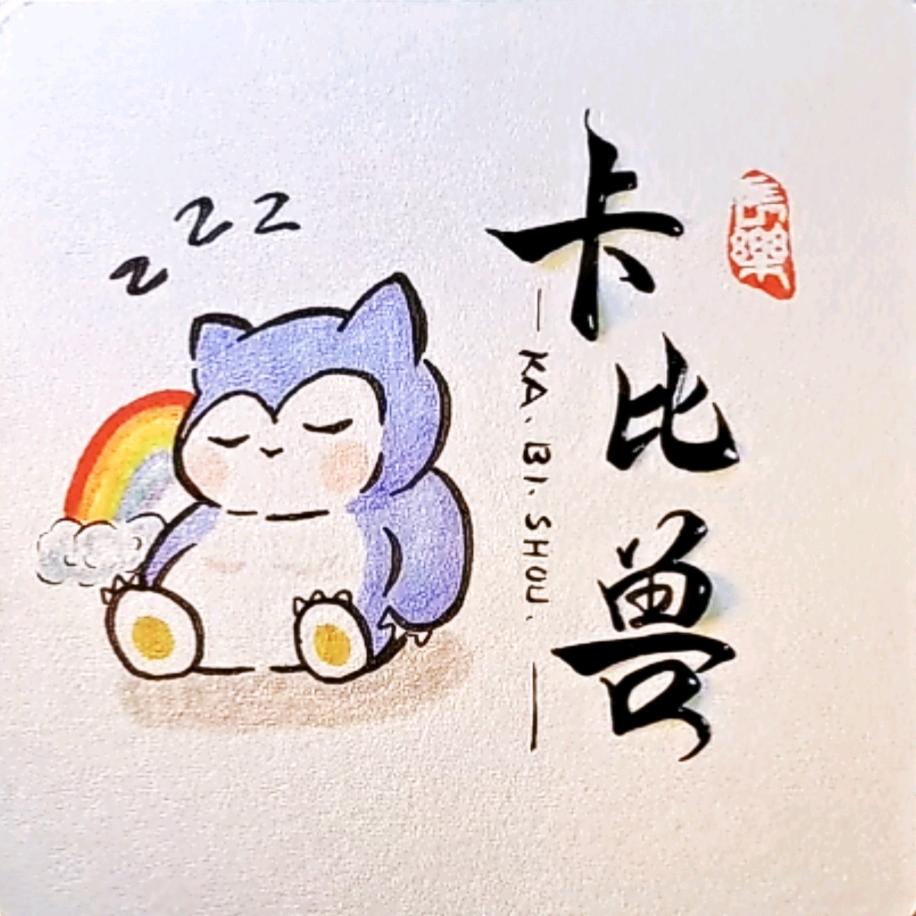 z z z
卡比兽
—KA. BI. SHOU.—
長樂